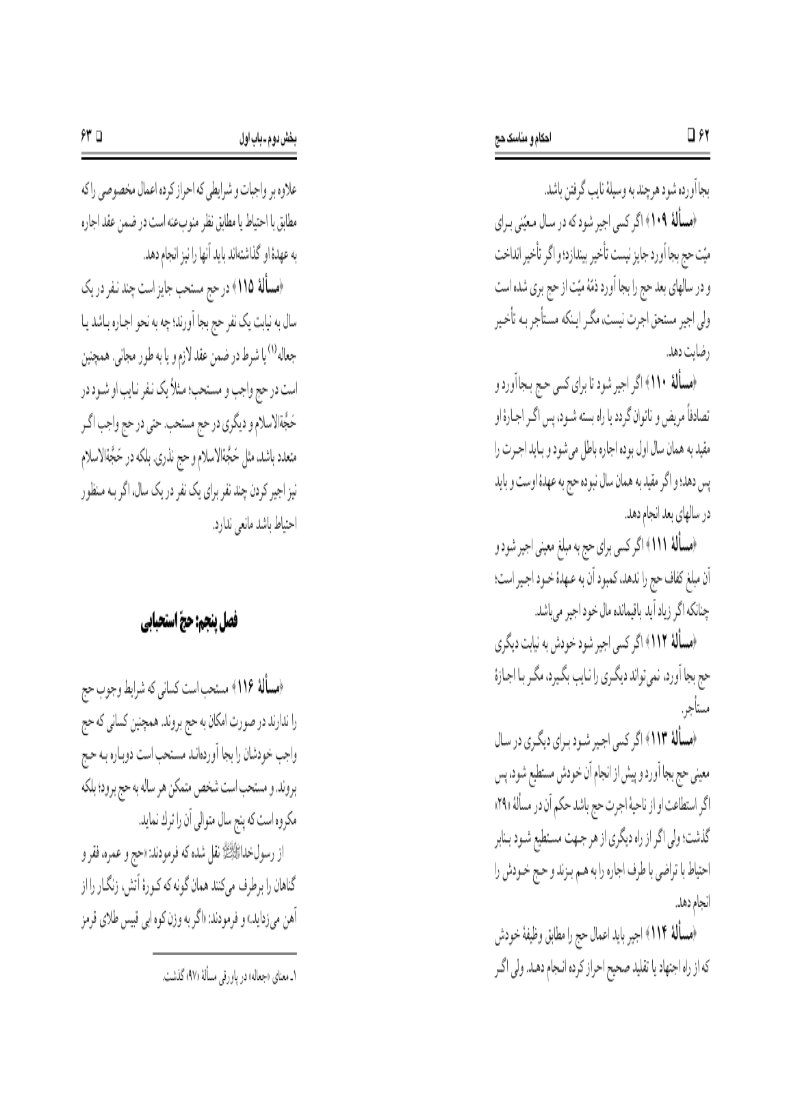 ۶۲ ❑ احکام و مناسک حج
بجا آورده شود هرچند به وسیلهٔ نایب گرفتن باشد.
﴿مسألهٔ ۱۰۹﴾ اگر کسی اجیر شود که در سال معیّنی برای
میّت حج بجا آورد جایز نیست تأخیر بیندازد؛ و اگر تأخیر انداخت
و در سالهای بعد حج را بجا آورد ذمّهٔ میّت از حج بری شده است
ولی اجیر مستحق اجرت نیست، مگر اینکه مستأجر به تأخیر
رضایت دهد.
﴿مسألهٔ ۱۱۰﴾ اگر اجیر شود تا برای کسی حج بجا آورد و
تصادفاً مریض و ناتوان گردد یا راه بسته شود، پس اگر اجارهٔ او
مقید به همان سال اول بوده اجاره باطل می‌شود و باید اجرت را
پس دهد؛ و اگر مقید به همان سال نبوده حج به عهدهٔ اوست و باید
در سالهای بعد انجام دهد.
﴿مسألهٔ ۱۱۱﴾ اگر کسی برای حج به مبلغ معینی اجیر شود و
آن مبلغ کفاف حج را ندهد، کمبود آن به عهدهٔ خود اجیر است؛
چنانکه اگر زیاد آید باقیمانده مال خود اجیر می‌باشد.
﴿مسألهٔ ۱۱۲﴾ اگر کسی اجیر شود خودش به نیابت دیگری
حج بجا آورد، نمی‌تواند دیگری را نایب بگیرد، مگر با اجازهٔ
مستأجر.
﴿مسألهٔ ۱۱۳﴾ اگر کسی اجیر شود برای دیگری در سال
معینی حج بجا آورد و پیش از انجام آن خودش مستطیع شود، پس
اگر استطاعت او از ناحیهٔ اجرت حج باشد حکم آن در مسألهٔ «۲۹»
گذشت؛ ولی اگر از راه دیگری از هر جهت مستطیع شود بنابر
احتیاط با تراضی با طرف اجاره را به هم بزند و حج خودش را
انجام دهد.
﴿مسألهٔ ۱۱۴﴾ اجیر باید اعمال حج را مطابق وظیفهٔ خودش
که از راه اجتهاد یا تقلید صحیح احراز کرده انجام دهد. ولی اگر
بخش دوم ـ باب اول ❑ ۶۳
علاوه بر واجبات و شرایطی که احراز کرده اعمال مخصوصی را که
مطابق با احتیاط یا مطابق نظر منوب‌عنه است در ضمن عقد اجاره
به عهدهٔ او گذاشته‌اند باید آنها را نیز انجام دهد.
﴿مسألهٔ ۱۱۵﴾ در حج مستحب جایز است چند نفر در یک
سال به نیابت یک نفر حج بجا آورند؛ چه به نحو اجاره باشد یا
جعاله(۱) یا شرط در ضمن عقد لازم و یا به طور مجانی. همچنین
است در حج واجب و مستحب؛ مثلاً یک نفر نایب او شود در
حَجَّةالاسلام و دیگری در حج مستحب. حتی در حج واجب اگر
متعدد باشد، مثل حَجَّةالاسلام و حج نذری. بلکه در حَجَّةالاسلام
نیز اجیر کردن چند نفر برای یک نفر در یک سال، اگر به منظور
احتیاط باشد مانعی ندارد.
فصل پنجم: حجّ استحبابی
﴿مسألهٔ ۱۱۶﴾ مستحب است کسانی که شرایط وجوب حج
را ندارند در صورت امکان به حج بروند. همچنین کسانی که حج
واجب خودشان را بجا آورده‌اند مستحب است دوباره به حج
بروند. و مستحب است شخص متمکن هر ساله به حج برود؛ بلکه
مکروه است که پنج سال متوالی آن را ترك نماید.
از رسول‌خدا ﷺ نقل شده که فرمودند: «حج و عمره، فقر و
گناهان را برطرف می‌کنند همان گونه که کورهٔ آتش، زنگار را از
آهن می‌زداید.» و فرمودند: «اگر به وزن کوه ابی قبیس طلای قرمز
۱ـ معنای «جعاله» در پاورقی مسألهٔ «۹۷» گذشت.